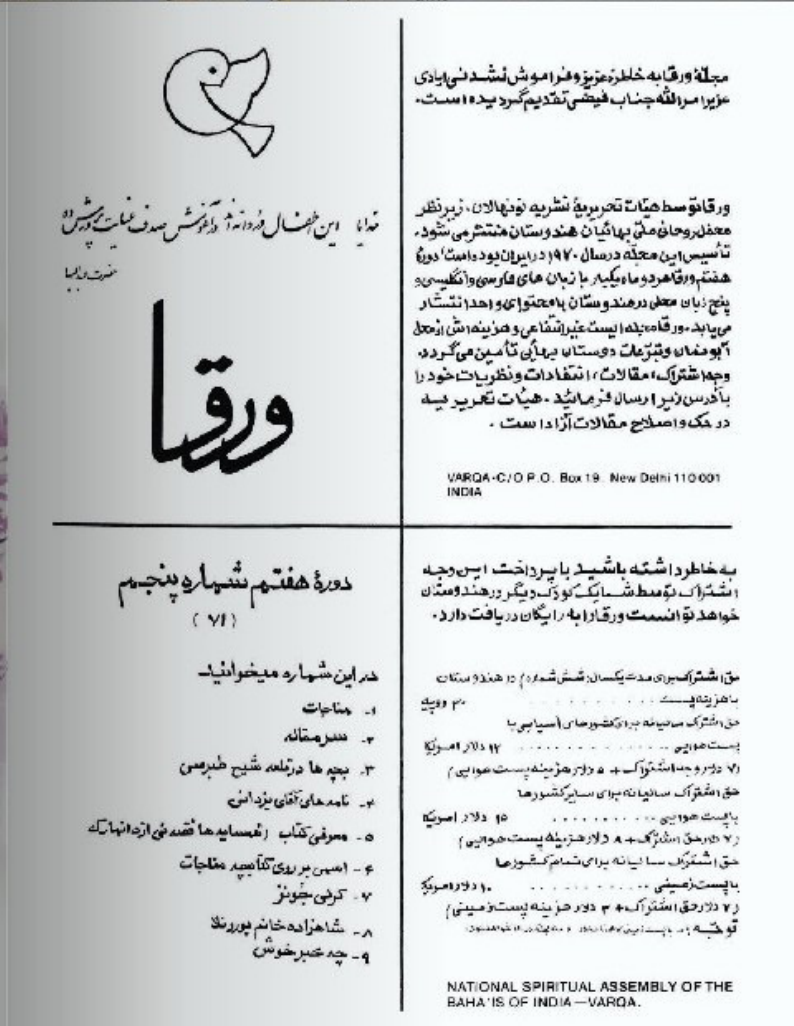 مجلّهٔ ورقا به خاطرهٔ عزیز و فراموش نشدنی ایادی
عزیز امرالله جناب فیضی تقدیم گردیده است.
ورقا توسط هیأت تحریریهٔ نشریه نونهالان، زیر نظر
محفل روحانی ملّی بهائیان هندوستان منتشر می شود.
تأسیس این مجلّه در سال ۱۹۷۰ در ایران بوده است دورهٔ
هفتم ورقا هر دو ماه یکبار با زبان های فارسی و انگلیسی و
پنج زبان محلی در هندوستان با محتوای واحد انتشار
می یابد. ورقا مجله ایست غیر انتفاعی و هزینه اش از محل
آبونمان و تبرّعات دوستان بهایی تأمین می گردد.
وجه اشتراک، مقالات، انتقادات و نظریات خود را
بآدرس زیر ارسال فرمائید. هیأت تحریریه
در حک و اصلاح مقالات آزاد است.
VARQA-C/O P.O. Box 19. New Delhi 110001
INDIA
خدایا این اطفال دردانه اند در آغوش صدف عنایت پرورش ده
حضرت عبدالبها
ورقا
به خاطر داشته باشید با پرداخت این وجه
اشتراک توسط شما یک کودک دیگر در هندوستان
خواهد توانست ورقا را به رایگان دریافت دارد.
حق اشتراک برای مدت یکسال (شش شماره) در هندوستان
با هزینه پست . . . . . . . . . ۳۰ روپیه
حق اشتراک سالیانه برای کشورهای آسیایی با
پست هوایی . . . . . . . . . ۱۲ دلار امریکا
(۷ دلار وجه اشتراک + ۵ دلار هزینه پست هوایی)
حق اشتراک سالیانه برای سایر کشورها
با پست هوایی . . . . . . . . . ۱۵ دلار امریکا
(۷ دلار حق اشتراک + ۸ دلار هزینه پست هوایی)
حق اشتراک سالیانه برای تمام کشورها
با پست زمینی . . . . . . . . . ۱۰ دلار امریکا
(۷ دلار حق اشتراک + ۳ دلار هزینه پست زمینی)
توجّه
NATIONAL SPIRITUAL ASSEMBLY OF THE
BAHA'IS OF INDIA—VARQA.
دورهٔ هفتم شماره پنجم
(۷۱)
در این شماره میخوانید
۱- مناجات
۲- سرمقاله
۳- بچه ها در قلعه شیخ طبرسی
۴- نامه های آقای یزدانی
۵- معرفی کتاب
۶- اسمی بر روی کتابچه مناجات
۷- کرنی جونز
۸- شاهزاده خانم پوررنلا
۹- چه خبر خوش